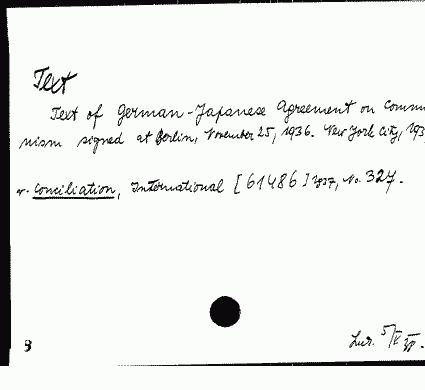 Text
Text of German-Japanese Agreement on Commu
nism signed at Berlin, November 25, 1936. New York City, 193
v. Conciliation, International [61486] 1937, No. 327.
8